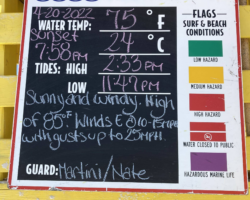 4-20-2022
WATER TEMP: 75 °F
Sunset
7:58PM 24 °C
TIDES: HIGH 2:33PM
LOW 11:47PM
Sunny and windy. High
of 85°F Winds E @ 10-15MPH
with gusts up to 25MPH.
GUARD: Martini/Nate
FLAGS
SURF & BEACH
CONDITIONS
LOW HAZARD
MEDIUM HAZARD
HIGH HAZARD
WATER CLOSED TO PUBLIC
HAZARDOUS MARINE LIFE